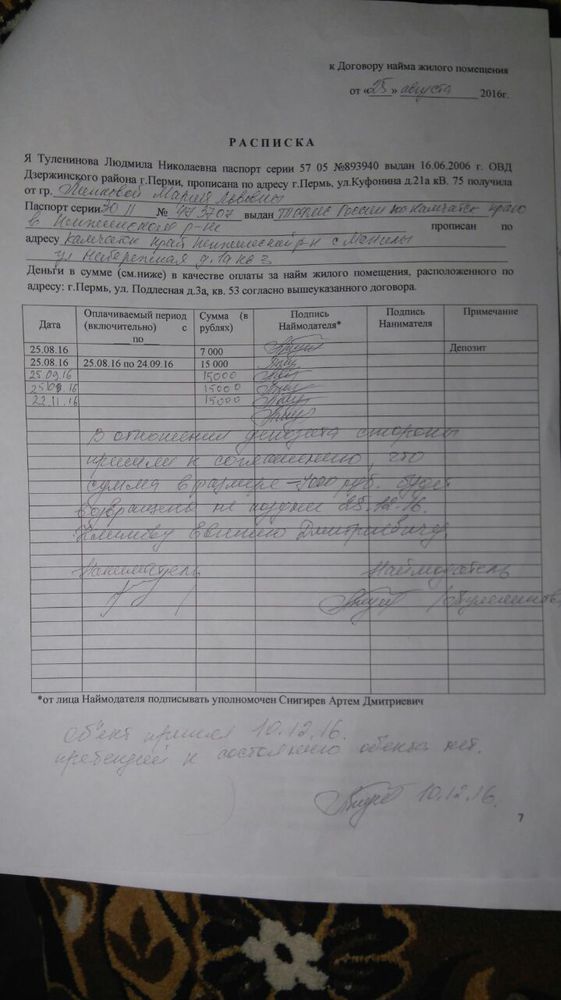 к Договору найма жилого помещения
от «25» августа 2016г.
РАСПИСКА
Я Туленинова Людмила Николаевна паспорт серии 57 05 №893940 выдан 16.06.2006 г. ОВД
Дзержинского района г.Перми, прописана по адресу г.Пермь, ул.Куфонина д.21а кВ. 75 получила
от гр. Марии Львовны
Паспорт серии 30 11 № выдан России по Камчатск. краю
в р-не прописан по
адресу Камчатск край р-н с Манилы
ул Набережная д. 1а кв 3
Деньги в сумме (см.ниже) в качестве оплаты за найм жилого помещения, расположенного по
адресу: г.Пермь, ул. Подлесная д.3а, кв. 53 согласно вышеуказанного договора.
Дата Оплачиваемый период (включительно) с по Сумма (в рублях) Подпись Наймодателя* Подпись Нанимателя Примечание
25.08.16 7 000 Депозит
25.08.16 25.08.16 по 24.09.16 15 000
25.09.16 15000
16 15000
22.11.16 15000
В отношении депозита стороны
пришли к соглашению, что
сумма в размере -7000 руб. будет
возвращена не позднее 25.12.16.
Евгению Дмитриевичу.
Наниматель Наймодатель
*от лица Наймодателя подписывать уполномочен Снигирев Артем Дмитриевич
Объект принял 10.12.16.
претензий к состоянию объекта нет.
10.12.16.
7